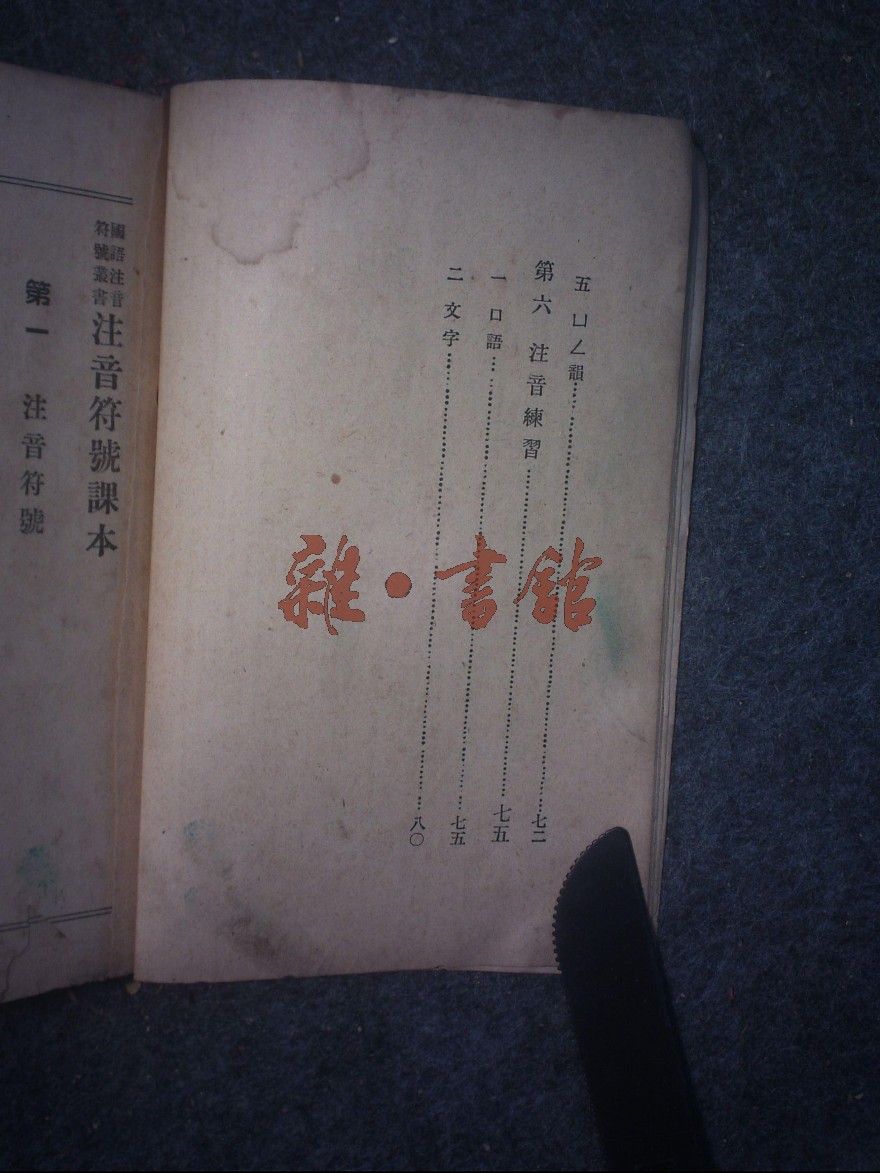 五 ㄩㄥ韻……七二
第六 注音練習……七五
一 口語……七五
二 文字……八〇
國語注音
符號叢書
注音符號課本
第一 注音符號
雜·書館